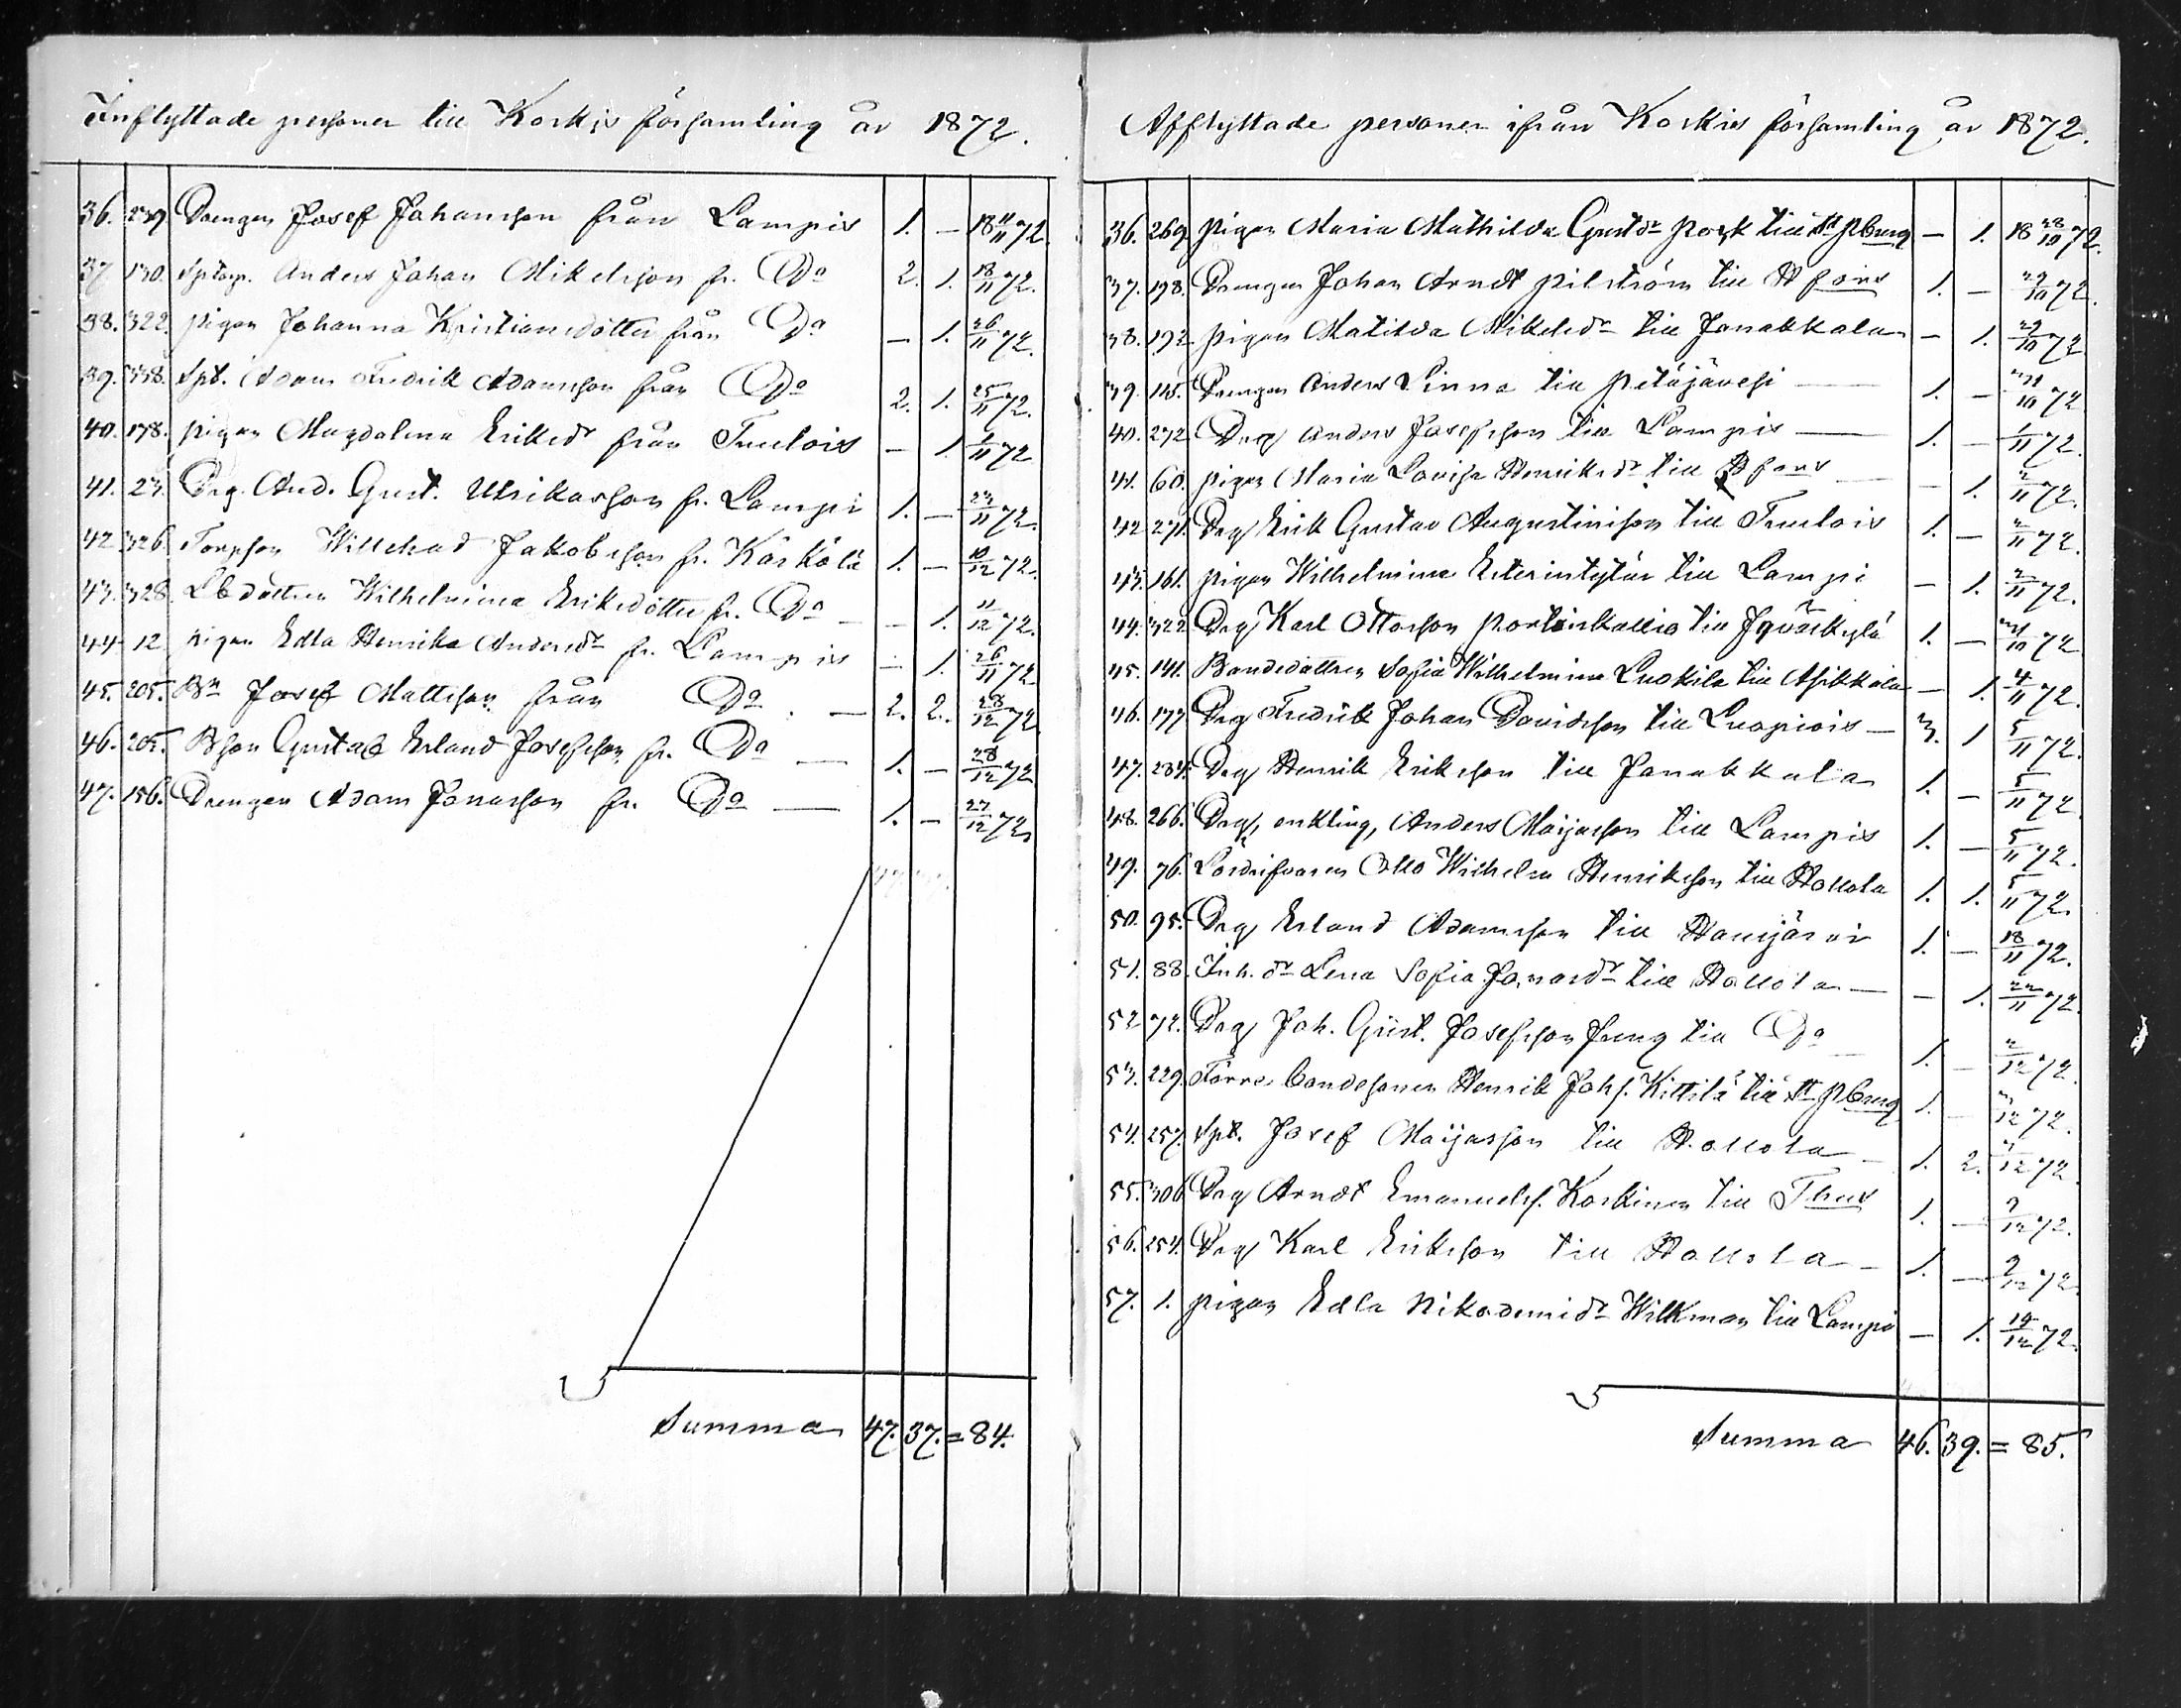 Inflyttade personer till Koskis församling år 1872.
36. 239. Drengen Josef Johansson från Lampis 1. — 18 11/11 72.
37. 130. Sptorp. Anders Johan Mikelsson fr. Do 2. 1. 18/11 72.
38. 322. pigan Johanna Kristiansdotter från Do — 1. 26/11 72.
39. 338. Spt. Adam Fredrik Adamsson från Do 2. 1. 25/11 72.
40. 178. pigan Magdalena Eriksdr från Tuulois — 1. 1/11 72
41. 23. Drg. And. Gust. Ulrikasson fr. Lampi 1. — 23/11 72.
42. 326. Torpson Willehad Jakobsson fr. Kärkölä 1. — 10/12 72.
43. 328. Lbdottren Wilhelmina Eriksdotter fr. Do — — 1. 11/12 72.
44. 12 pigan Edla Henrika Andersdr fr. Lampis — 1. 26/11 72
45. 205. Bn Josef Mattsson från Do — 2. 2. 28/12 72
46. 205. Bson Gustaf Erland Josefsson fr. Do — 1. — 28/12 72
47. 156. Drengen Adam Jonasson fr. Do — 1. — 27/12 72.
Summa 47. 37. = 84.
Afflyttade personer ifrån Koskis församling år 1872.
36. 269. pigan Maria Mathilda Gustdr Pork till St Pburg — 1. 18 28/10 72.
37. 198. Drengen Johan Arndt Pilström till Hfors 1. — 29/10 72.
38. 192. pigan Matilda Mikelsdr till Janakkala — 1. 29/10 72
39. 115. Drengen Anders Linna till Petäjävesi — 1. — 31/10 72
40. 272. Drg Anders Josefsson till Lampis — 1. — 1/11 72.
41. 60. pigan Maria Lovisa Henriksdr till Hfors — — 1. 2/11 72.
42. 271. Drg Erik Gustav Augustinsson till Tuulois 1. — 2/11 72.
43. 161. pigan Wilhelmina till Lampi — 1. 2/11 72.
44. 322. Drg Karl Ottosson Portinkallio till Jyväskylä 1. — 31/10 72
45. 141. Bondedottren Sofia Wilhelmina Luokila till Asikkala — 1. 4/11 72.
46. 177. Drg Fredrik Johan Davidsson till Luopiois — 3. 1 5/11 72.
47. 284. Drg Henrik Eriksson till Janakkala 1. — 5/11 72
48. 266. Drg, enkling, Anders Maijasson till Lampis 1. — 5/11 72.
49. 76. Otto Wilhelm Henriksson till Hollola 1. 1. 5/11 72.
50. 95. Drg Erland Adamsson till Hausjärvi 1. — 18/11 72.
51. 88. Inh. dr Lena Sofia Jonasdr till Hollola — — 1. 22/11 72.
52. 72. Drg Joh. Gust. Josefsson till Do — 1. — 2/12 72.
53. 229. Förre bondesonen Henrik Johs. Kittilä till St Pburg 1. — 3/12 72.
54. 257. Spt. Josef Maijasson till Hollola — 1. 2. 7/12 72
55. 306. Drg Arndt Emanuels. Koskinen till Thus 1. — 9/12 72.
56. 254. Drg Karl Eriksson till Hollola — 1. — 9/12 72.
57. 1. pigan Edla Nikodemidr Wilkman till Lampis — 1. 19/12 72.
Summa 46. 39. = 85.